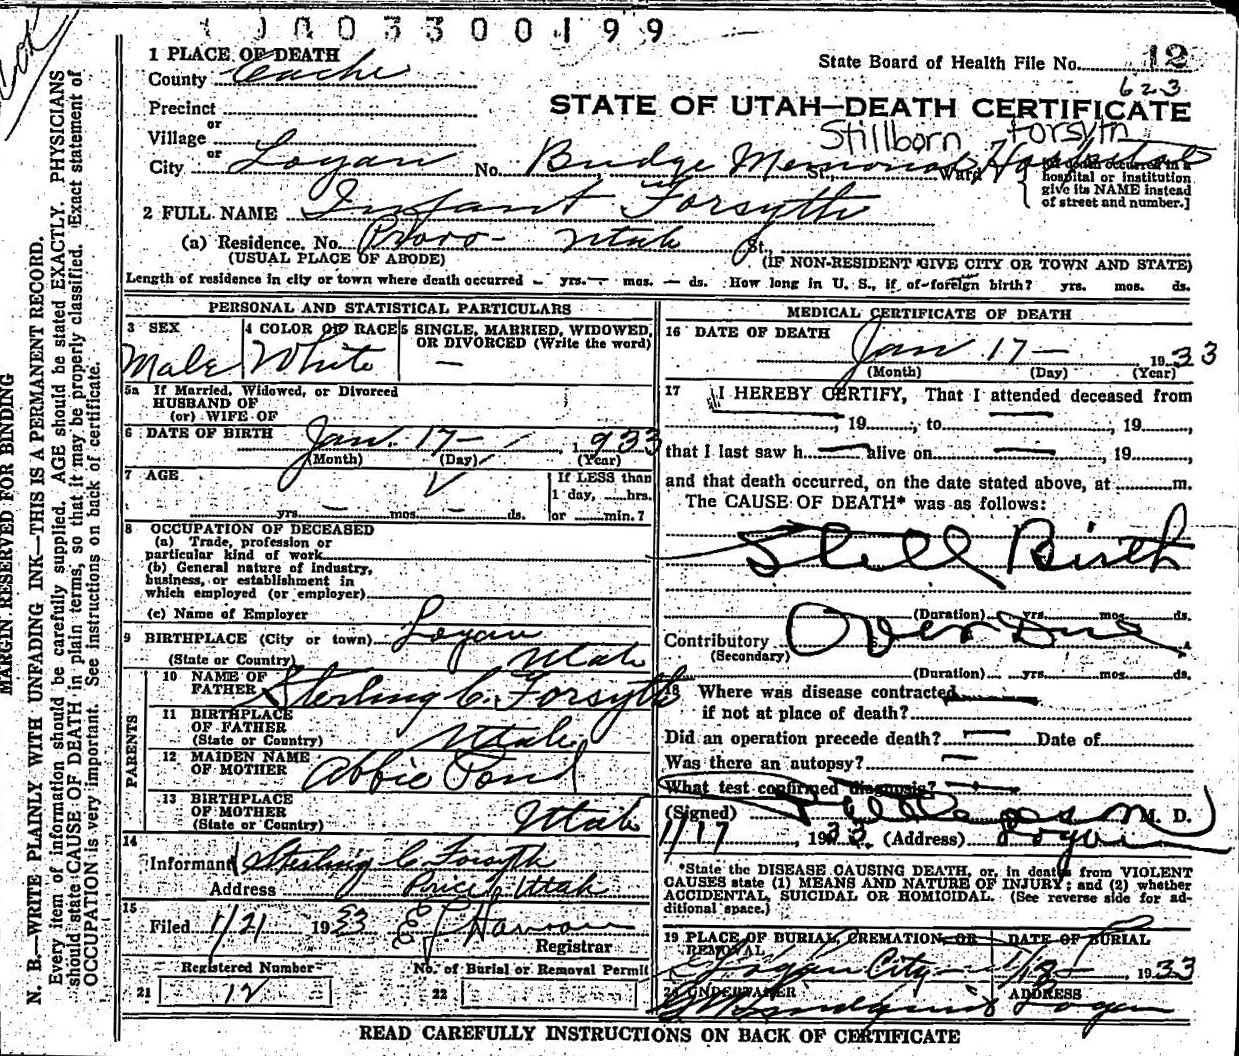 1 0 0 0 3 3 0 0 1 9 9
1 PLACE OF DEATH
County Cache
State Board of Health File No. 12
623
Precinct
STATE OF UTAH—DEATH CERTIFICATE
or
Village
Stillborn Forsyth
or
City Logan No. Budge Memorial Hospital St., Ward
{ [If death occurred in a hospital or institution give its NAME instead of street and number.]
2 FULL NAME Infant Forsyth
(a) Residence. No. Provo - Utah St.,
(USUAL PLACE OF ABODE) (IF NON-RESIDENT GIVE CITY OR TOWN AND STATE)
Length of residence in city or town where death occurred – yrs. – mos. – ds. How long in U. S., if of foreign birth? yrs. mos. ds.
PERSONAL AND STATISTICAL PARTICULARS
3 SEX
Male
4 COLOR OR RACE
White
5 SINGLE, MARRIED, WIDOWED, OR DIVORCED (Write the word)
—
5a If Married, Widowed, or Divorced
HUSBAND OF
(or) WIFE OF
6 DATE OF BIRTH Jan. 17 - 1933
(Month) (Day) (Year)
7 AGE
yrs. mos. ds.
If LESS than
1 day, ......hrs.
or ......min.?
8 OCCUPATION OF DECEASED
(a) Trade, profession or
particular kind of work
(b) General nature of industry,
business, or establishment in
which employed (or employer)
(c) Name of Employer
9 BIRTHPLACE (City or town) Logan
(State or Country) Utah
PARENTS
10 NAME OF FATHER Sterling C. Forsyth
11 BIRTHPLACE OF FATHER
(State or Country) Utah
12 MAIDEN NAME OF MOTHER Abbie Pond
13 BIRTHPLACE OF MOTHER
(State or Country) Utah
14
Informant Sterling C Forsyth
Address Price, Utah
15
Filed 1/21 1933
Registrar
Registered Number
21 12
No. of Burial or Removal Permit
22
MEDICAL CERTIFICATE OF DEATH
16 DATE OF DEATH
Jan 17 — 1933
(Month) (Day) (Year)
17 I HEREBY CERTIFY, That I attended deceased from
, 19......, to , 19......,
that I last saw h alive on , 19......
and that death occurred, on the date stated above, at ..........m.
The CAUSE OF DEATH* was as follows:
Still Birth
(Duration) yrs. mos. ds.
Contributory Over Due
(Secondary)
(Duration) yrs. mos. ds.
18 Where was disease contracted
if not at place of death?
Did an operation precede death? — Date of
Was there an autopsy? —
What test confirmed diagnosis? —
(Signed) M. D.
1/17, 1933. (Address) Logan
*State the DISEASE CAUSING DEATH, or, in deaths from VIOLENT
CAUSES state (1) MEANS AND NATURE OF INJURY; and (2) whether
ACCIDENTAL, SUICIDAL OR HOMICIDAL. (See reverse side for additional space.)
19 PLACE OF BURIAL, CREMATION, OR REMOVAL
Logan City
DATE OF BURIAL
1/18 - 1933
20 UNDERTAKER
ADDRESS
Logan
READ CAREFULLY INSTRUCTIONS ON BACK OF CERTIFICATE
MARGIN RESERVED FOR BINDING
N. B.—WRITE PLAINLY WITH UNFADING INK—THIS IS A PERMANENT RECORD.
Every item of information should be carefully supplied. AGE should be stated EXACTLY. PHYSICIANS
should state CAUSE OF DEATH in plain terms, so that it may be properly classified. Exact statement of
OCCUPATION is very important. See instructions on back of certificate.